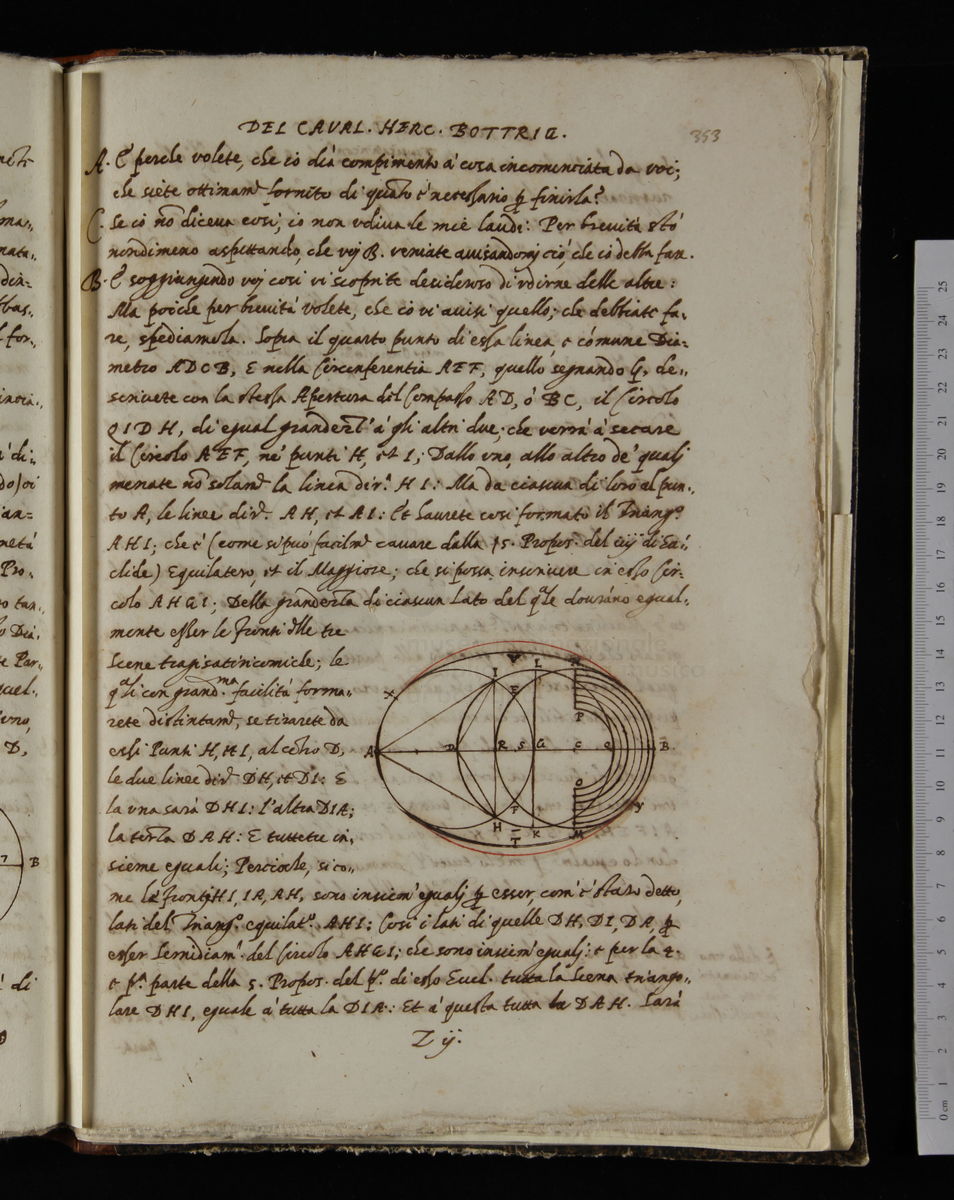 DEL CAVAL. HERC. BOTTRIG.
353
A. E perche volete, che io dià compimento á cosa incominciata da voi;
che siéte ottimam.te fornito di quãto é necessario p finirla?
C. Se io nõ diceua cosi, io non vdiua le mie laudi: Per breuità stó
nondimeno aspettando, che voj B. veniate auisandomj ció, che io debba fan.
B. E soggiungendo voj cosi vi scoprite desideroso di vdirne delle altre:
Ma poiche per breuità volete, che io vi auisi quello, che debbiate fa,
re, spediamola. Sopra il quarto punto di essa linea, e cómune Dia-
metro ADCB, E nella Circonferentia AEF, quello segnando G, de,,
scriuete con la stessa Apertura del Compasso AD, ó BC, il Circolo
GIDH, di egual grandezza á gli altri due; che verrà á secare
il Circolo AEF, né punti H, et I; Dallo vno, allo altro de' qualj
menate nõ solam.te la linea dir.a HI: Ma da ciascun di loro al pun,,
to A, le linee dir.e AH, et AI: Et haurete cosi formato il Triang.o
AHI; che é (come si puó facilm.te cauare dalla 15. Propos. del iiij di Eu,
clide) Equilatero, et il Maggiore; che si possa inscriuere in esso Cir-
colo AHGI; Della grandezza di ciascun Lato del q.le dourãno egual,,
mente esser le fronti dlle tre
Scene trag:satiricomiche; le
q.ali con grand.ma facilitá forma,,
rete distintam.te, se tirarete da
essi Punti H, et I, al cétro D,
le due linee dir.e DH, et DI: E
la vna sará DHI: l'altra DIA;
la terza DAH: E tuttetre in,
sieme eguali; Percioche, si co,,
me le fronti HI, IA, AH, sono insiem' egualj p esser, com' é stato detto,
lati del Triang.o equilat.o AHI: Cosi i lati di quelle DH, DI, DA, p
esser Semidiam.i del Circolo AHGI; che sono insiem' egualj: e per la 4.
e p.a parte della 5. Propos. del p.o di esso Eucl. tutta la Scena triango,,
lare DHI, eguale á tutta la DIA: Et á questa tutta la DAH. Sará
Z ij.
X V L N
I E P
A D R S G C Q B
F O
H T K M Y